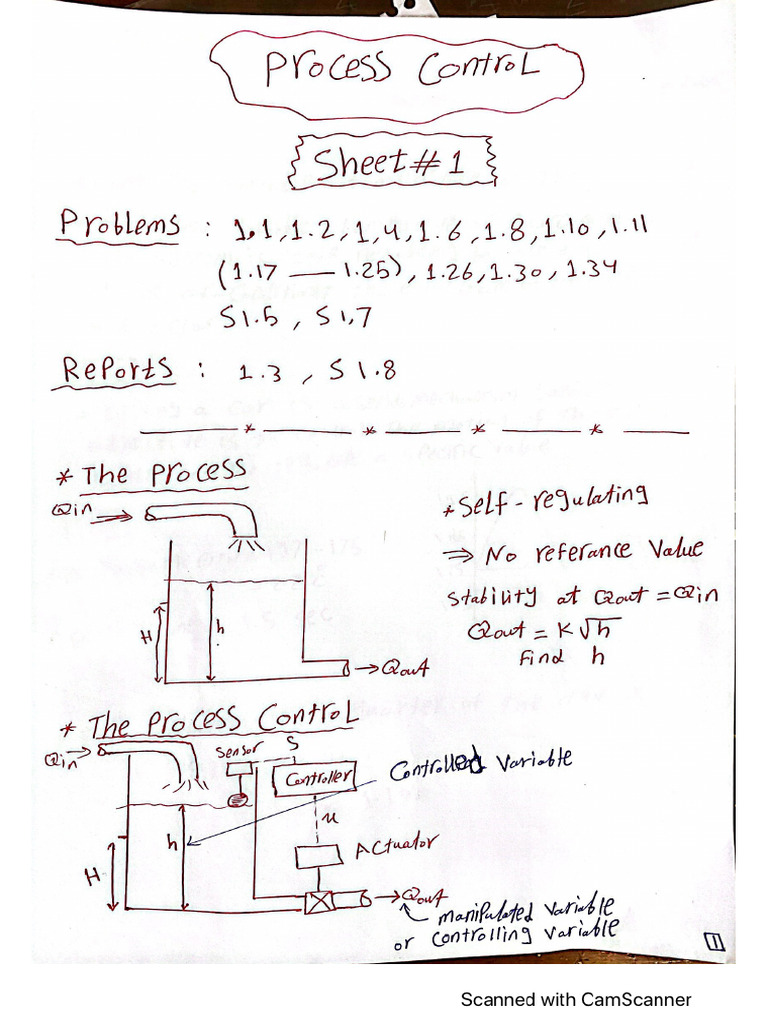 Process Control
Sheet # 1
Problems : 1.1, 1.2, 1,4, 1.6, 1.8, 1.10, 1.11
(1.17 — 1.25), 1.26, 1.30, 1.34
S1.5, S1.7
Reports : 1.3, S1.8
* The Process
Qin
H
h
Qout
* Self-regulating
⇒ No referance Value
Stability at Qout = Qin
Qout = K√h
Find h
* The Process Control
Qin
Sensor
S
Controller
Controlled Variable
u
Actuator
H
h
Qout
manipulated variable
or controlling variable
1
Scanned with CamScanner